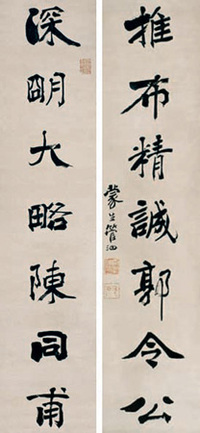 推布精誠郭令公
深明大略陳同甫